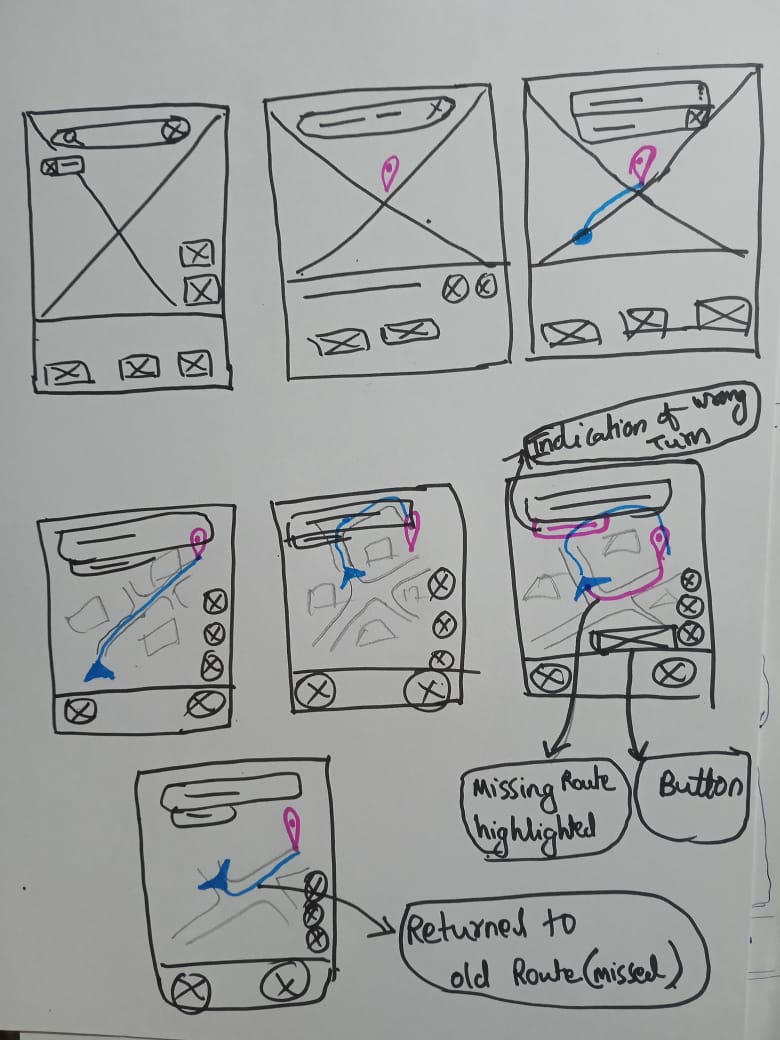 Indication of wrong
Turn
Missing Route
highlighted
Button
Returned to
old Route (missed)